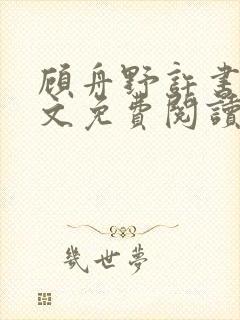 顾舟野許書
文免費閱讀
幾世夢